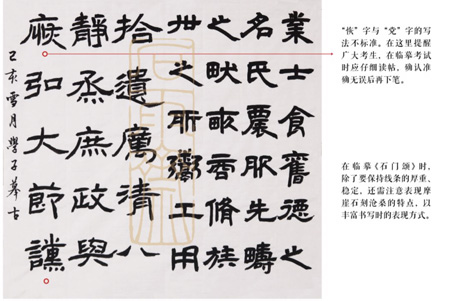 業士食舊德之
名氏農服先疇
之畎畝商脩族
世之所鬻工用
拾遺厲清八
靜烝庶政與
厥弘大節讜
己亥雪月學子摹古
“恢”字与“党”字的写
法不标准。在这里提醒
广大考生，在临摹考试
时应仔细读帖，确认准
确无误后再下笔。
在临摹《石门颂》时，
除了要保持线条的厚重、
稳定，还需注意表现摩
崖石刻沧桑的特点，以
丰富书写时的表现方式。